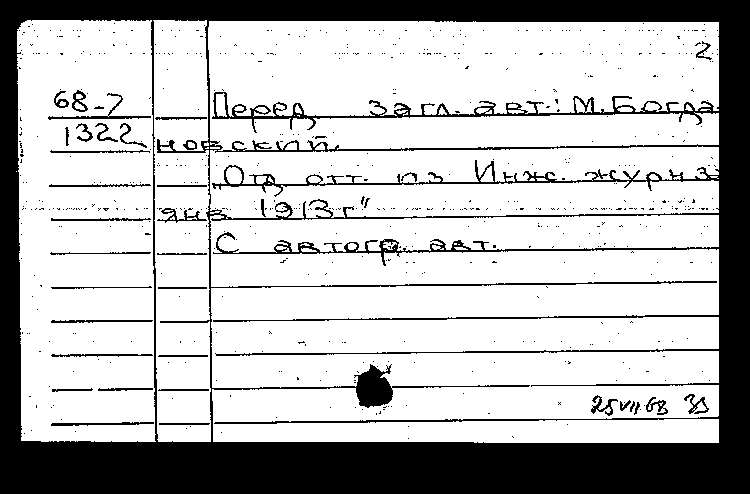 2
68-7 Перед загл. авт.: М. Богда-
1322 новский.
„Отд. отт. из Инж. журн. за
янв. 1913 г"
С автогр. авт.
25 VII 68